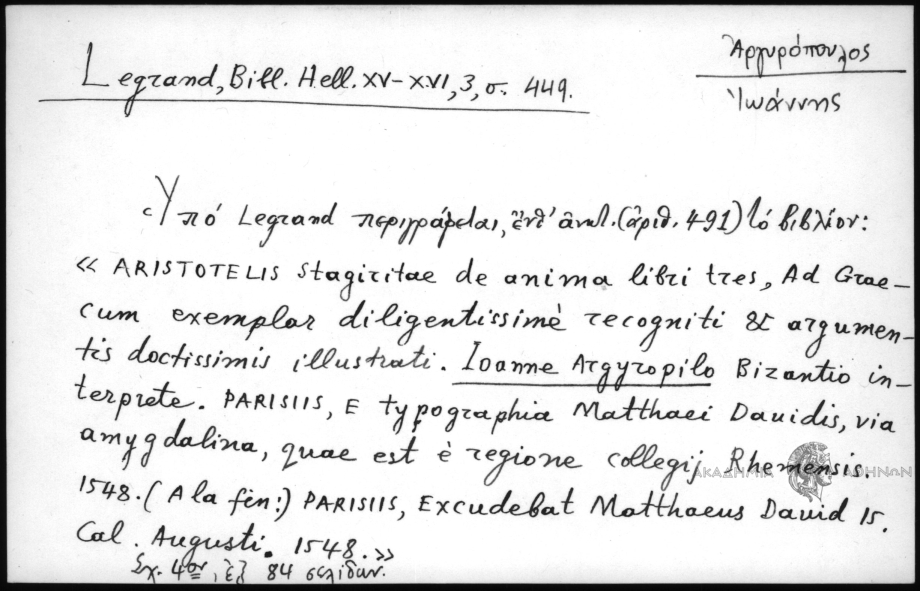 Ἀργυρόπουλος
Ἰωάννης
Legrand, Bibl. Hell. XV-XVI, 3, σ. 449.
Ὑπό Legrand περιγράφεται, ὑπ' ἀριθ. (ἀριθ. 491) τό βιβλίον:
« ARISTOTELIS Stagiritae de anima libri tres, Ad Grae-
cum exemplar diligentissimè recogniti & argumen-
tis doctissimis illustrati. Ioanne Argyropilo Bizantio in-
terprete. PARISIIS, E typographia Matthaei Dauidis, via
amygdalina, quae est è regione collegij Rhemensis.
ΑΚΑΔΗΜΙΑ ΑΘΗΝΩΝ
1548. (A la fin:) PARISIIS, Excudebat Matthaeus Dauid 15.
Cal. Augusti. 1548.»
Σχ. 4ον, ἐκ 84 σελίδων.